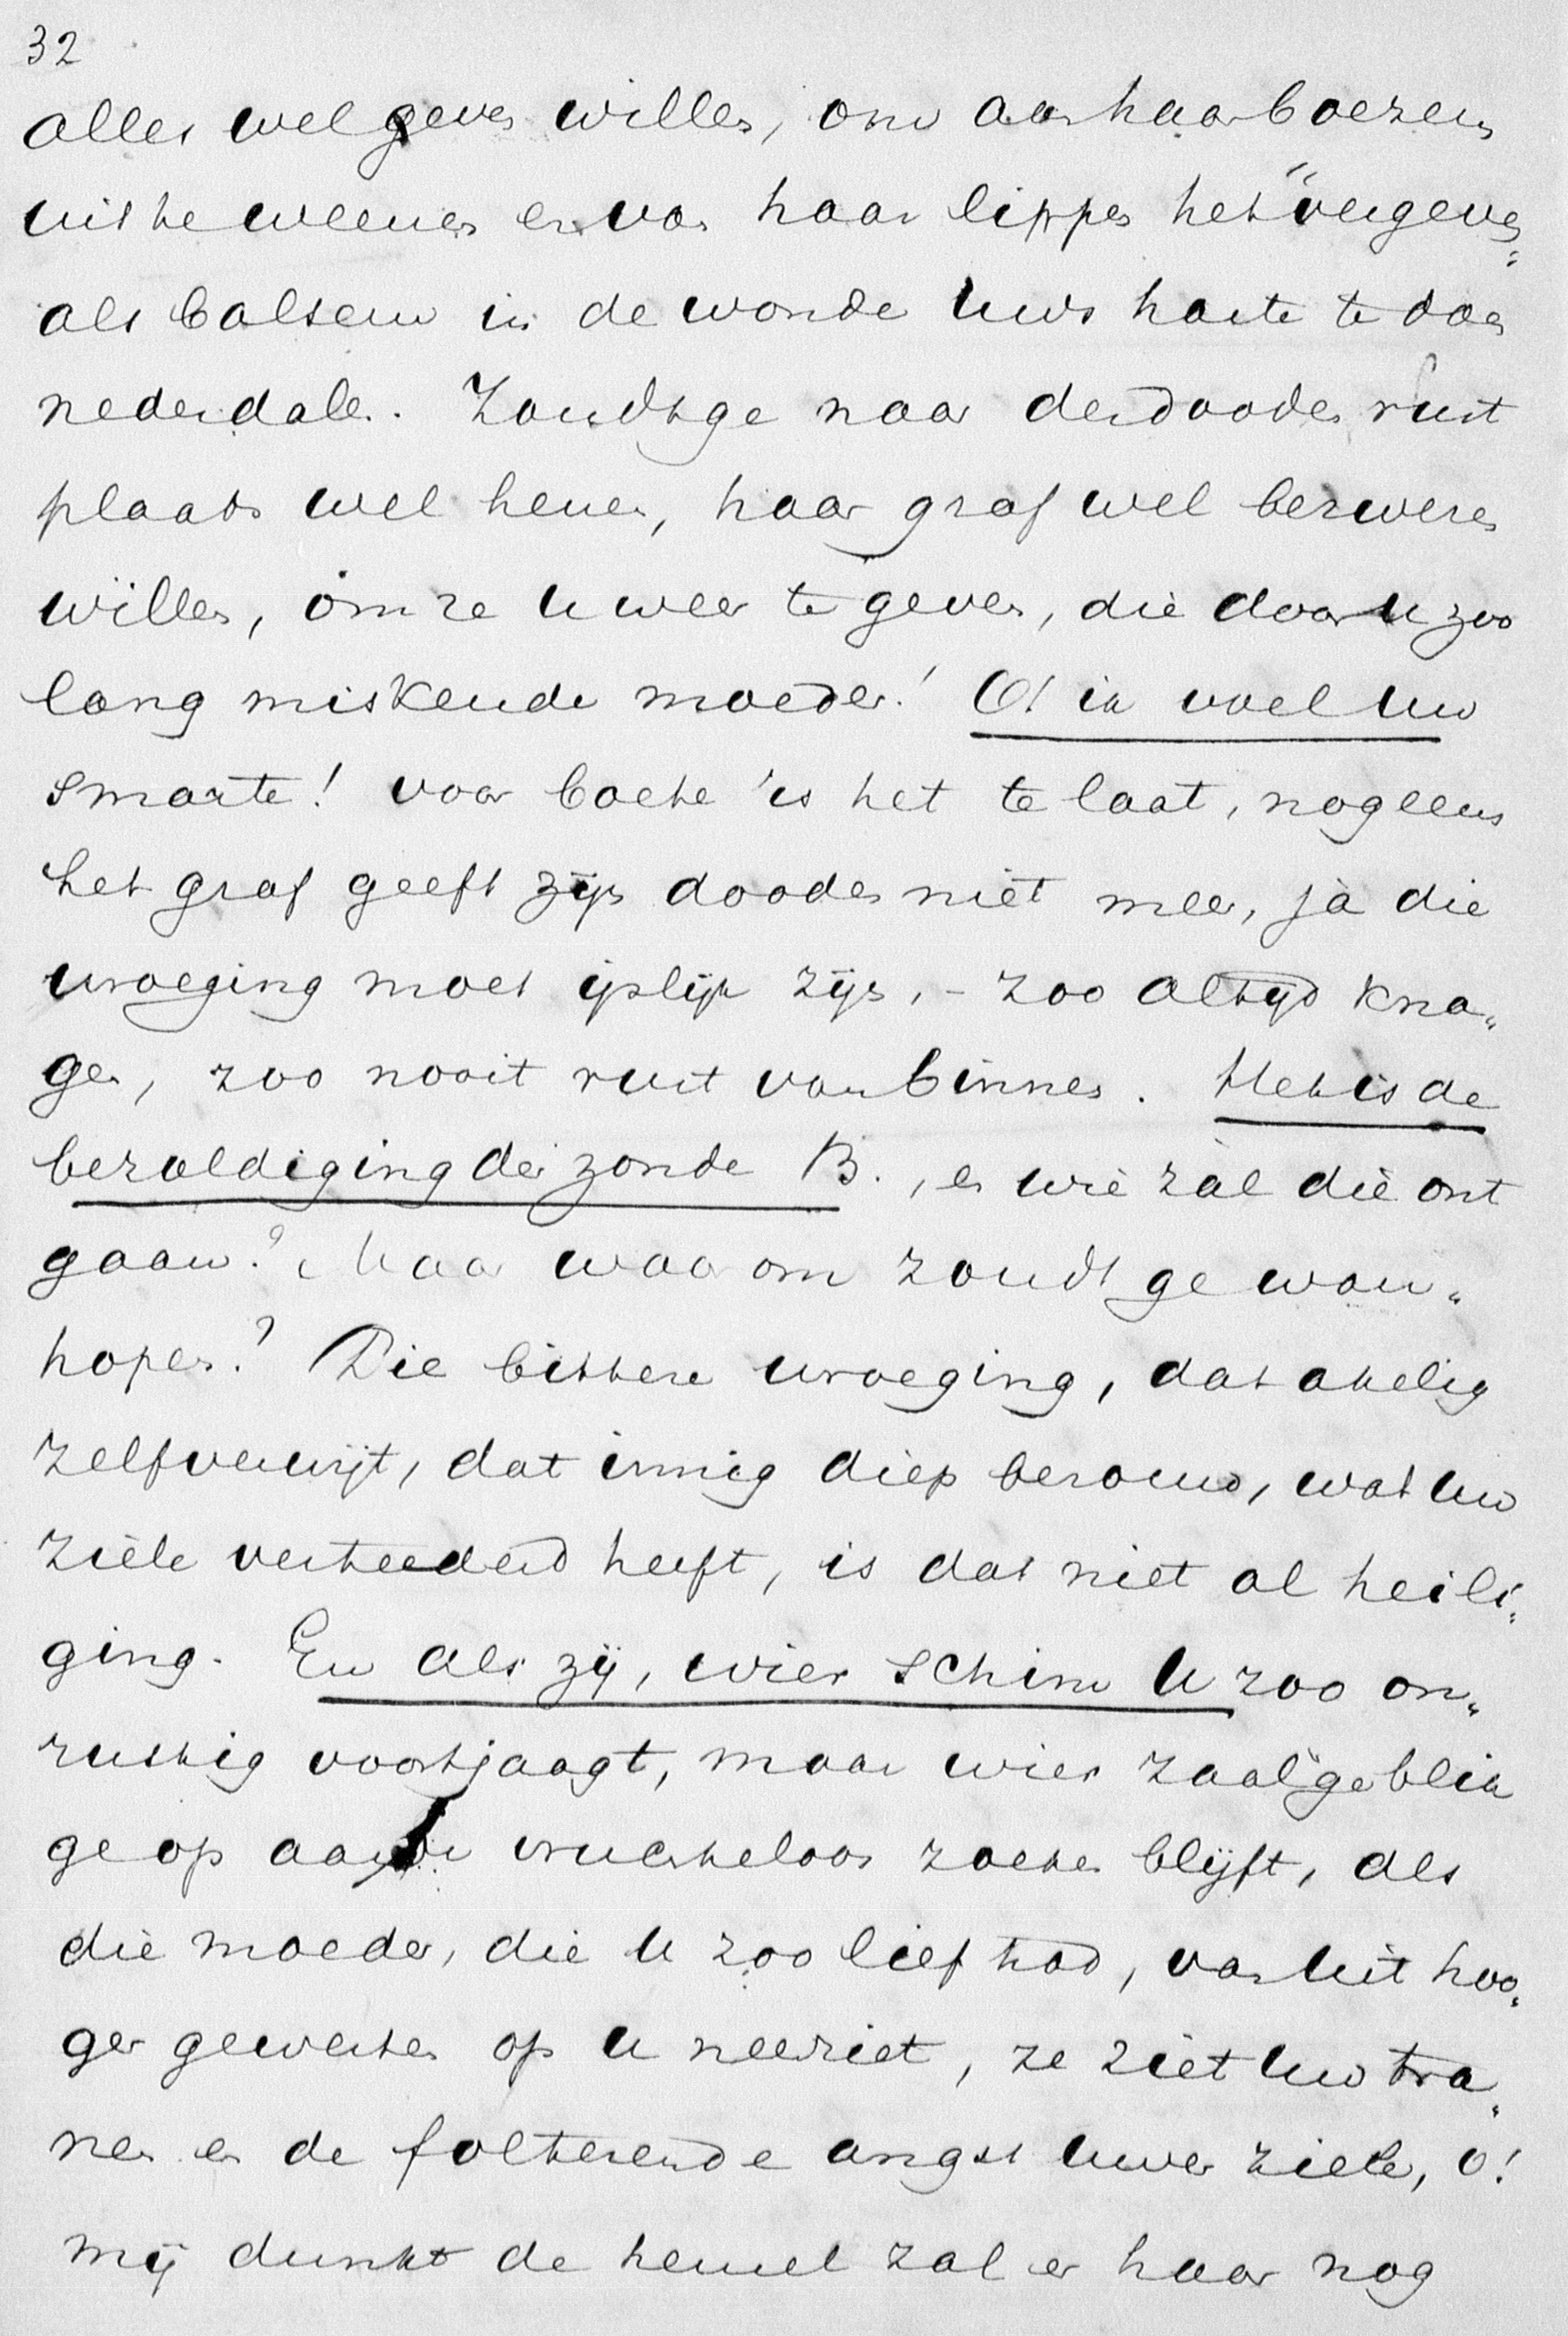 32
alles wel geven willen, om aan haar boezem
uit te weenen en van haar lippen het "vergeven„
als balsem in de wonde uws harte te doen
nederdalen. Zoudt ge naar der dooden rust
plaats wel henen, haar graf wel bezweren
willen, om ze u weer te geven, die door u zoo
lang miskende moeder! O! ik voel uw
smarte! voor boete is het te laat, nog eens
het graf geeft zijn dooden niet meer, ja die
wroeging moet ijslijk zijn, - zoo altijd kna„
gen, zoo nooit rust van binnen. Het is de
bezoldiging der zonde B., en wie zal die ont
gaan? Maar waarom zoudt ge wan„
hopen? Die bittere wroeging, dat akelig
zelfverwijt, dat innig diep berouw, wat uw
ziele verteederd heeft, is dat niet al heili„
ging. En als zij, wier schim u zoo on„
rustig voortjaagt, maar wier zaal'ge blik
ge op aarde vruchteloos zoeken blijft, als
die moeder, die u zoo lief had, van uit hoo„
ger gewesten op u neerziet, ze ziet uw tra„
nen en de folterende angst uwer ziele, o!
mij dunkt de hemel zal er haar nog